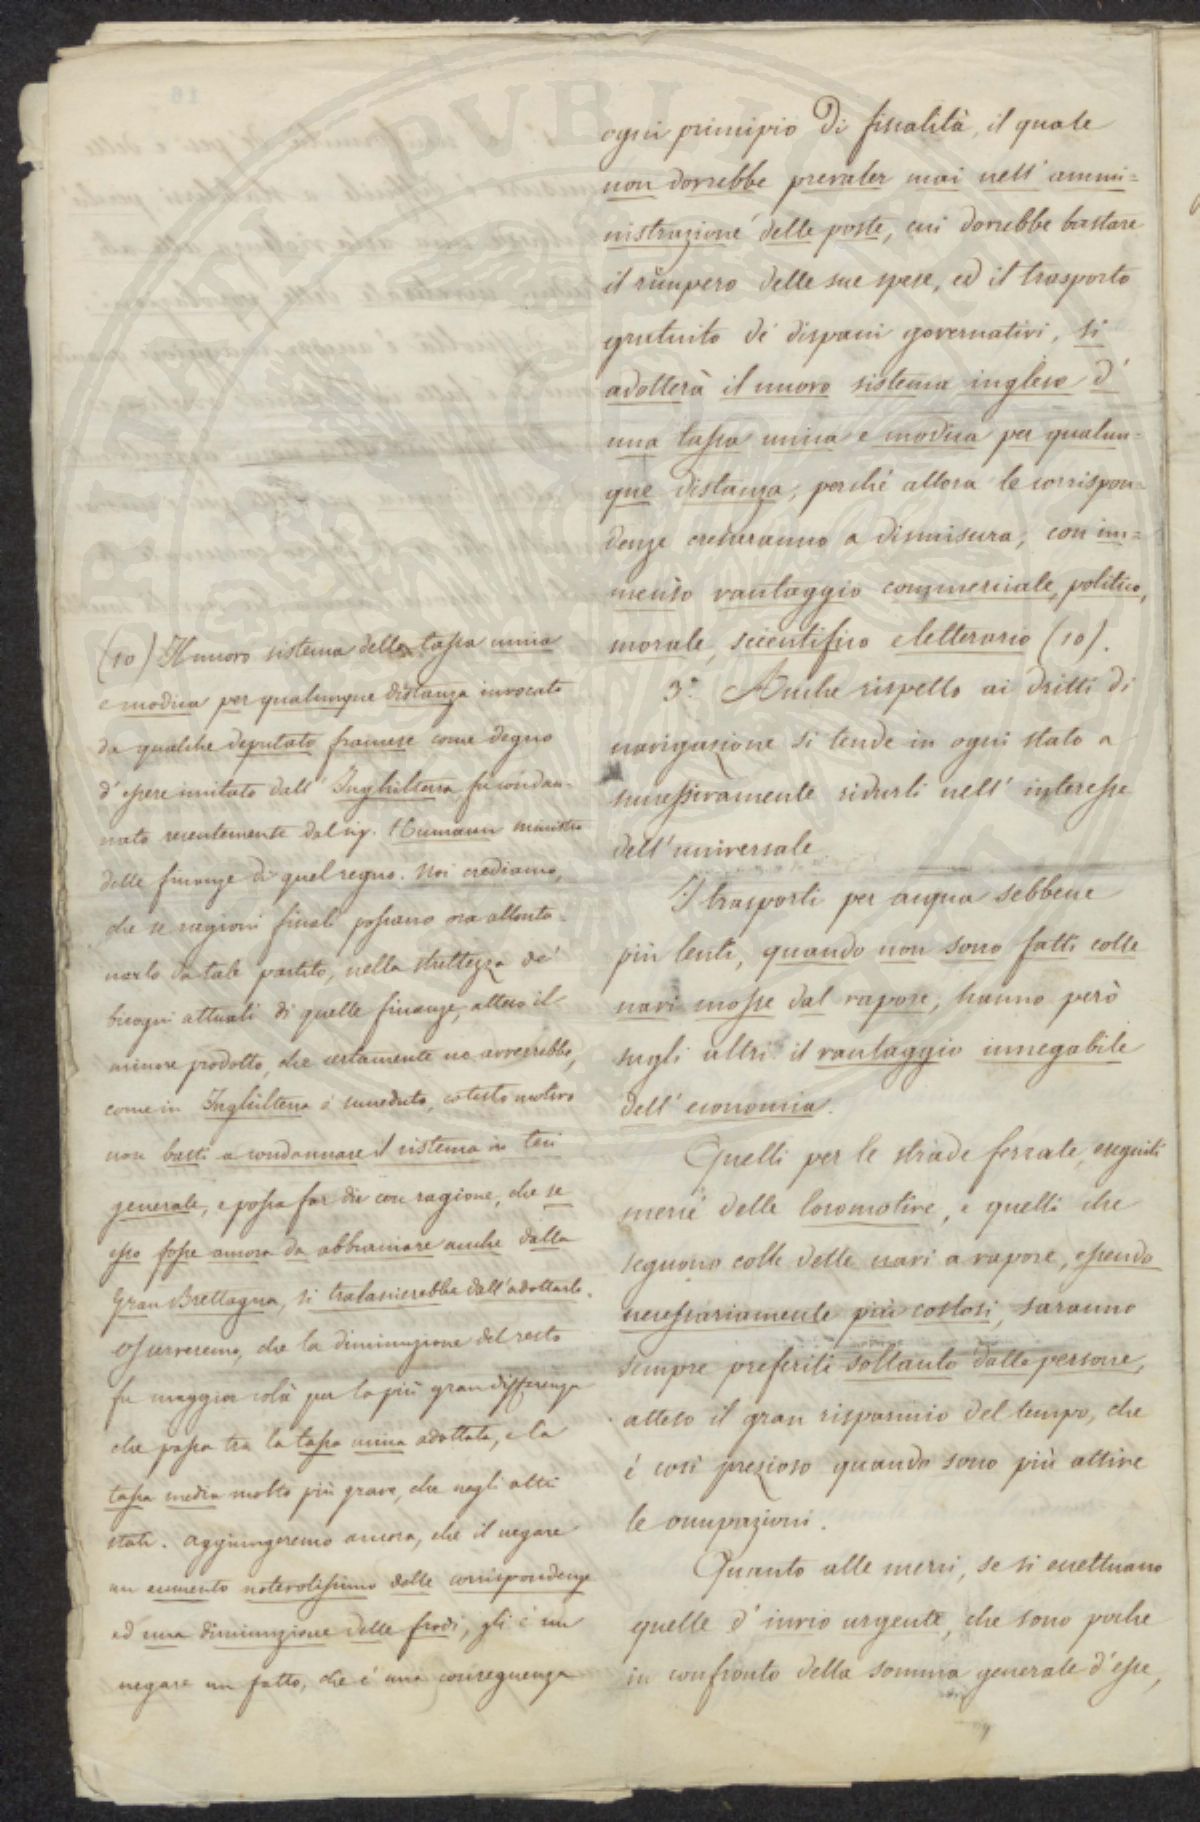 ogni principio di fiscalità, il quale
non dovrebbe prevaler mai nell' ammi=
nistrazione delle poste, cui dovrebbe bastare
il ricupero delle sue spese, ed il trasporto
gratuito de' dispacci governativi, si
adotterà il nuovo sistema inglese d'
una tassa unica e modica per qualun=
que distanza, perchè allora le corrispon=
denze cresceranno a dismisura, con im=
menso vantaggio commerciale, politico,
morale, scientifico e letterario (10).
3.° Anche rispetto ai dritti di
navigazione si tende in ogni stato a
successivamente ridurli nell' interesse
dell' universale
I trasporti per acqua sebbene
più lenti, quando non sono fatti colle
navi mosse dal vapore, hanno però
sugli altri il vantaggio innegabile
dell' economia.
Quelli per le strade ferrate, eseguiti
mercè delle locomotive, e quelli che
seguono colle dette navi a vapore, essendo
necessariamente più costosi, saranno
sempre preferiti soltanto dalle persone,
atteso il gran risparmio del tempo, che
è così prezioso quando sono più attive
le occupazioni.
Quanto alle merci, se si eccettuano
quelle d' invio urgente, che sono poche
in confronto della somma generale d' esse,
(10) Il nuovo sistema della tassa unica
e modica per qualunque distanza invocato
da qualche deputato francese come degno
d' essere imitato dall' Inghilterra, fu condan-
nato recentemente dal sig. Humann ministro
delle finanze di quel regno. Noi crediamo,
che se ragioni fiscali possano ora allonta-
narlo da tale partito, nella strettezza de'
bisogni attuali di quelle finanze, atteso il
minore prodotto, che certamente ne avverrebbe,
come in Inghilterra è succeduto, cotesto motivo
non basti a condannare il sistema in tesi
generale, e possa far dir con ragione, che se
esso fosse ancora da abbracciare anche dalla
Gran Brettagna, si tralascierebbe dall' adottarlo.
Osserveremo, che la diminuzione del resto
fu maggior colà per la più gran differenza
che passa tra la tassa unica adottata, e la
tassa media molto più grave, che negli altri
stati. Aggiungeremo ancora, che il negare
un aumento notevolissimo delle corrispondenze
ed una diminuzione delle frodi, gli è un
negare un fatto, che è una conseguenza